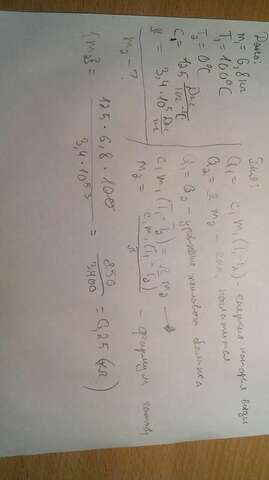 Дано:
m₁ = 6,8 кг
T₁ = 100°C
T₂ = 0°C
C₁ = 125 Дж/кг·°C
λ = 3,4·10⁵ Дж/кг
m₂ - ?
Реш:
Q₁ = c₁ m₁ (T₁ - T₂) - энергия которая
Q₂ = λ m₂ -
Q₁ = Q₂ - уравнение теплового баланса
c₁ m₁ (T₁ - T₂) = λ m₂
m₂ = c₁ m₁ (T₁ - T₂) / λ - формула
m₂ = 125 · 6,8 · 100 / 3,4 · 10⁵ = 850 / 3400 = 0,25 (кг)